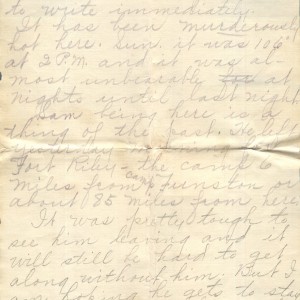 to write immediately.
It has been murderously
hot here. Sun. it was 106°
at 3 P.M. and it was al-
most unbearable at
nights until last night.
Sam being here is a
thing of the past. He left
yesterday morning for
Fort Riley - the camp 6
miles from Camp Funston or
about 185 miles from here.
It was pretty tough to
see him leaving and it
will still be hard to get
along without him. But I
am hoping he gets to stay